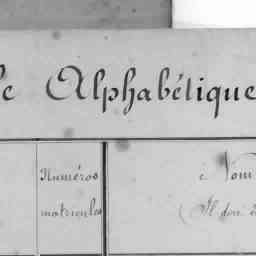 le Alphabétique
Numéros
matricules
Nom
(Il don